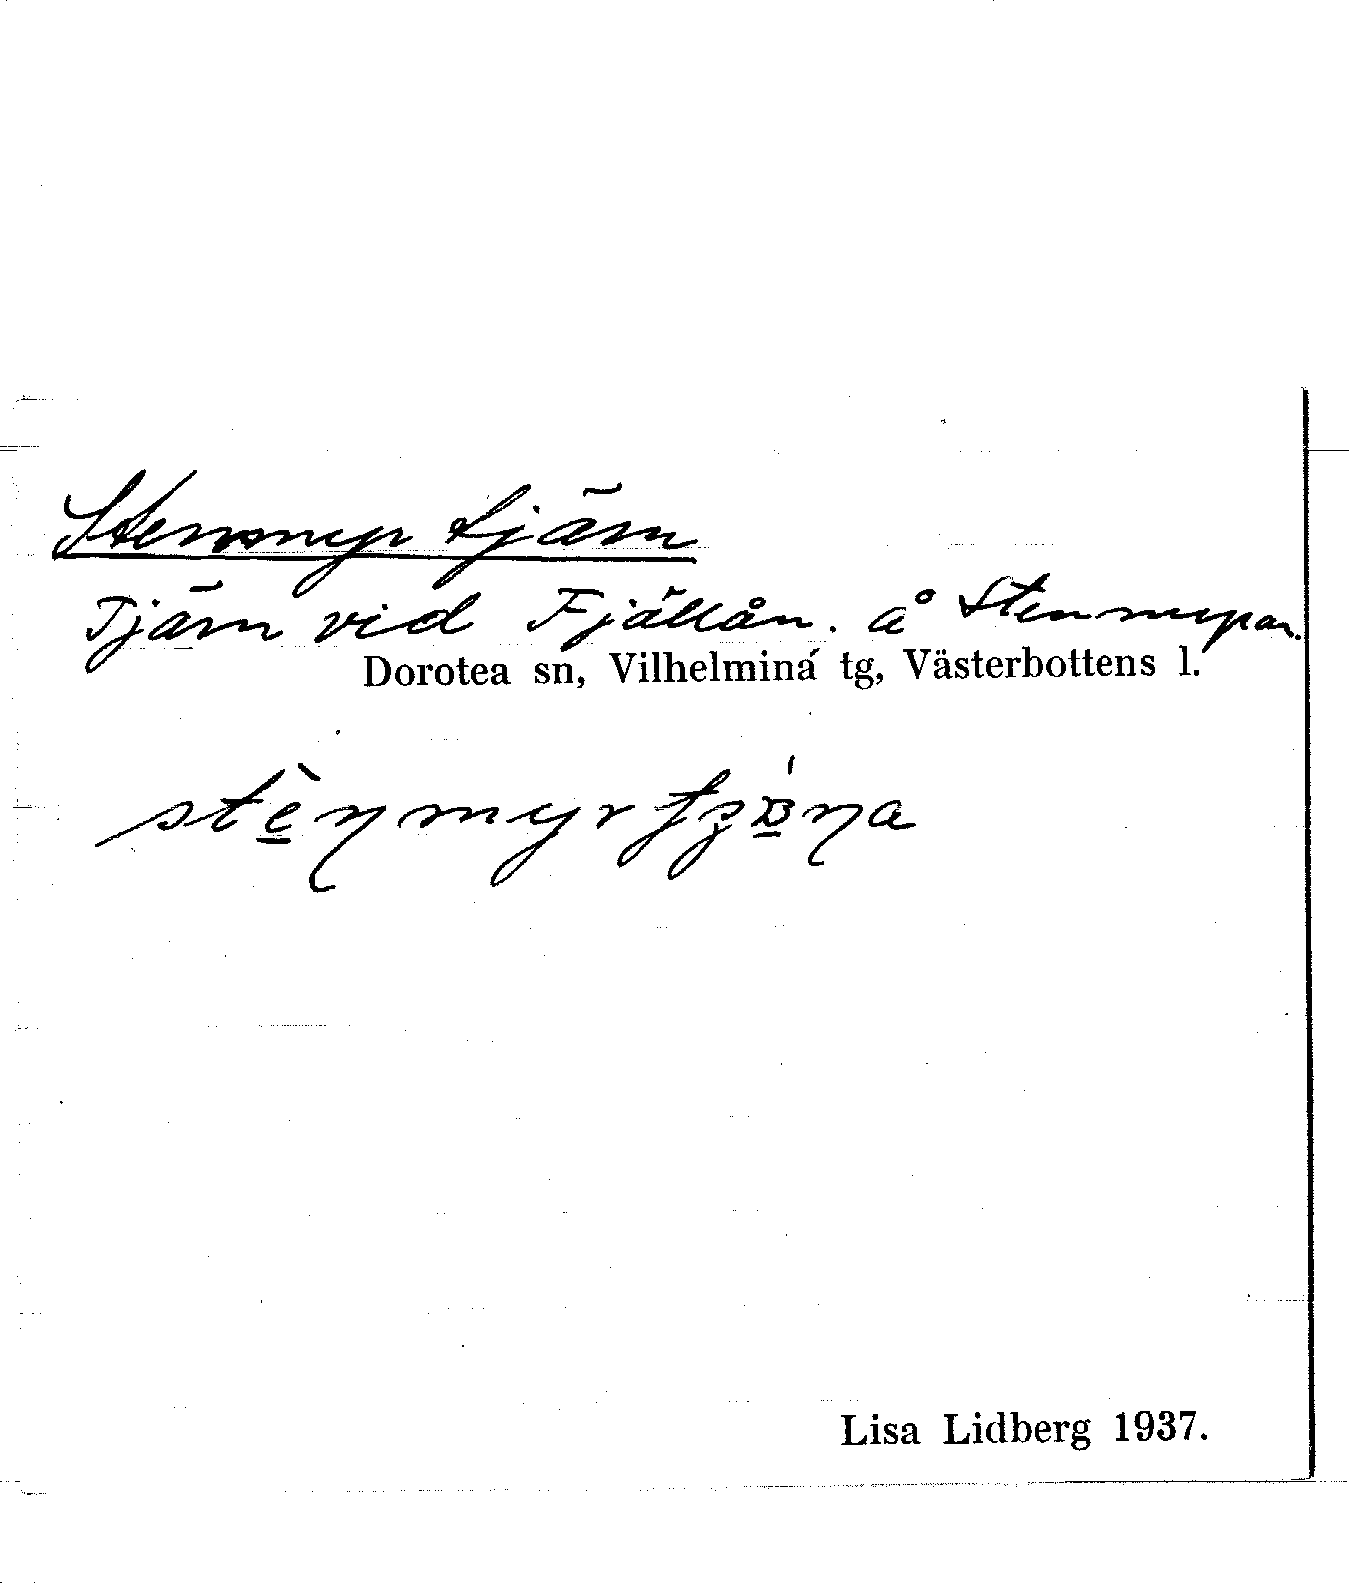 Stenmyr tjärn
Tjärn vid Fjällån. å Stenmyran.
Dorotea sn, Vilhelmina tg, Västerbottens l.
Lisa Lidberg 1937.